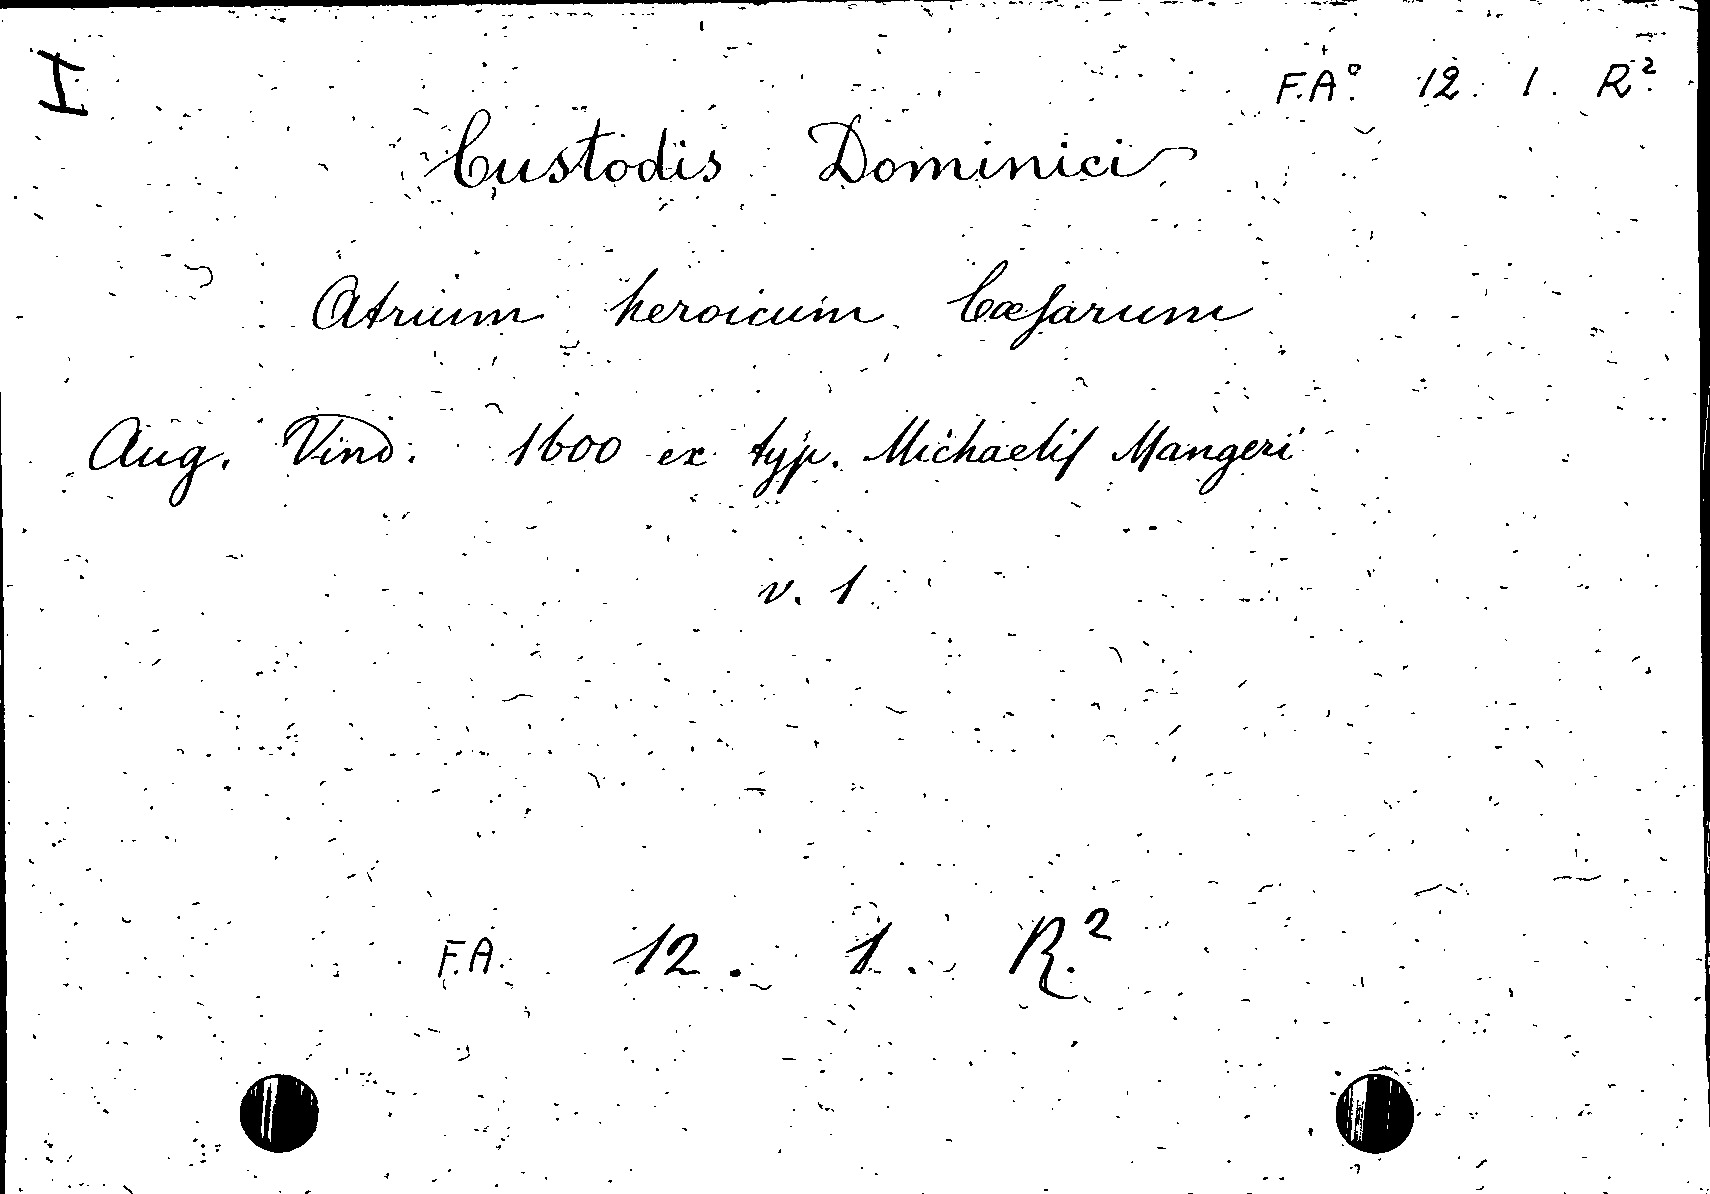 I
F.A.° 12. 1. R.²
Custodis Dominici
Atrium heroicum Cæſarum
Aug. Vind. 1600 ex typ. Michaeliſ Mangeri
v. 1
F.A. 12. 1. R.²